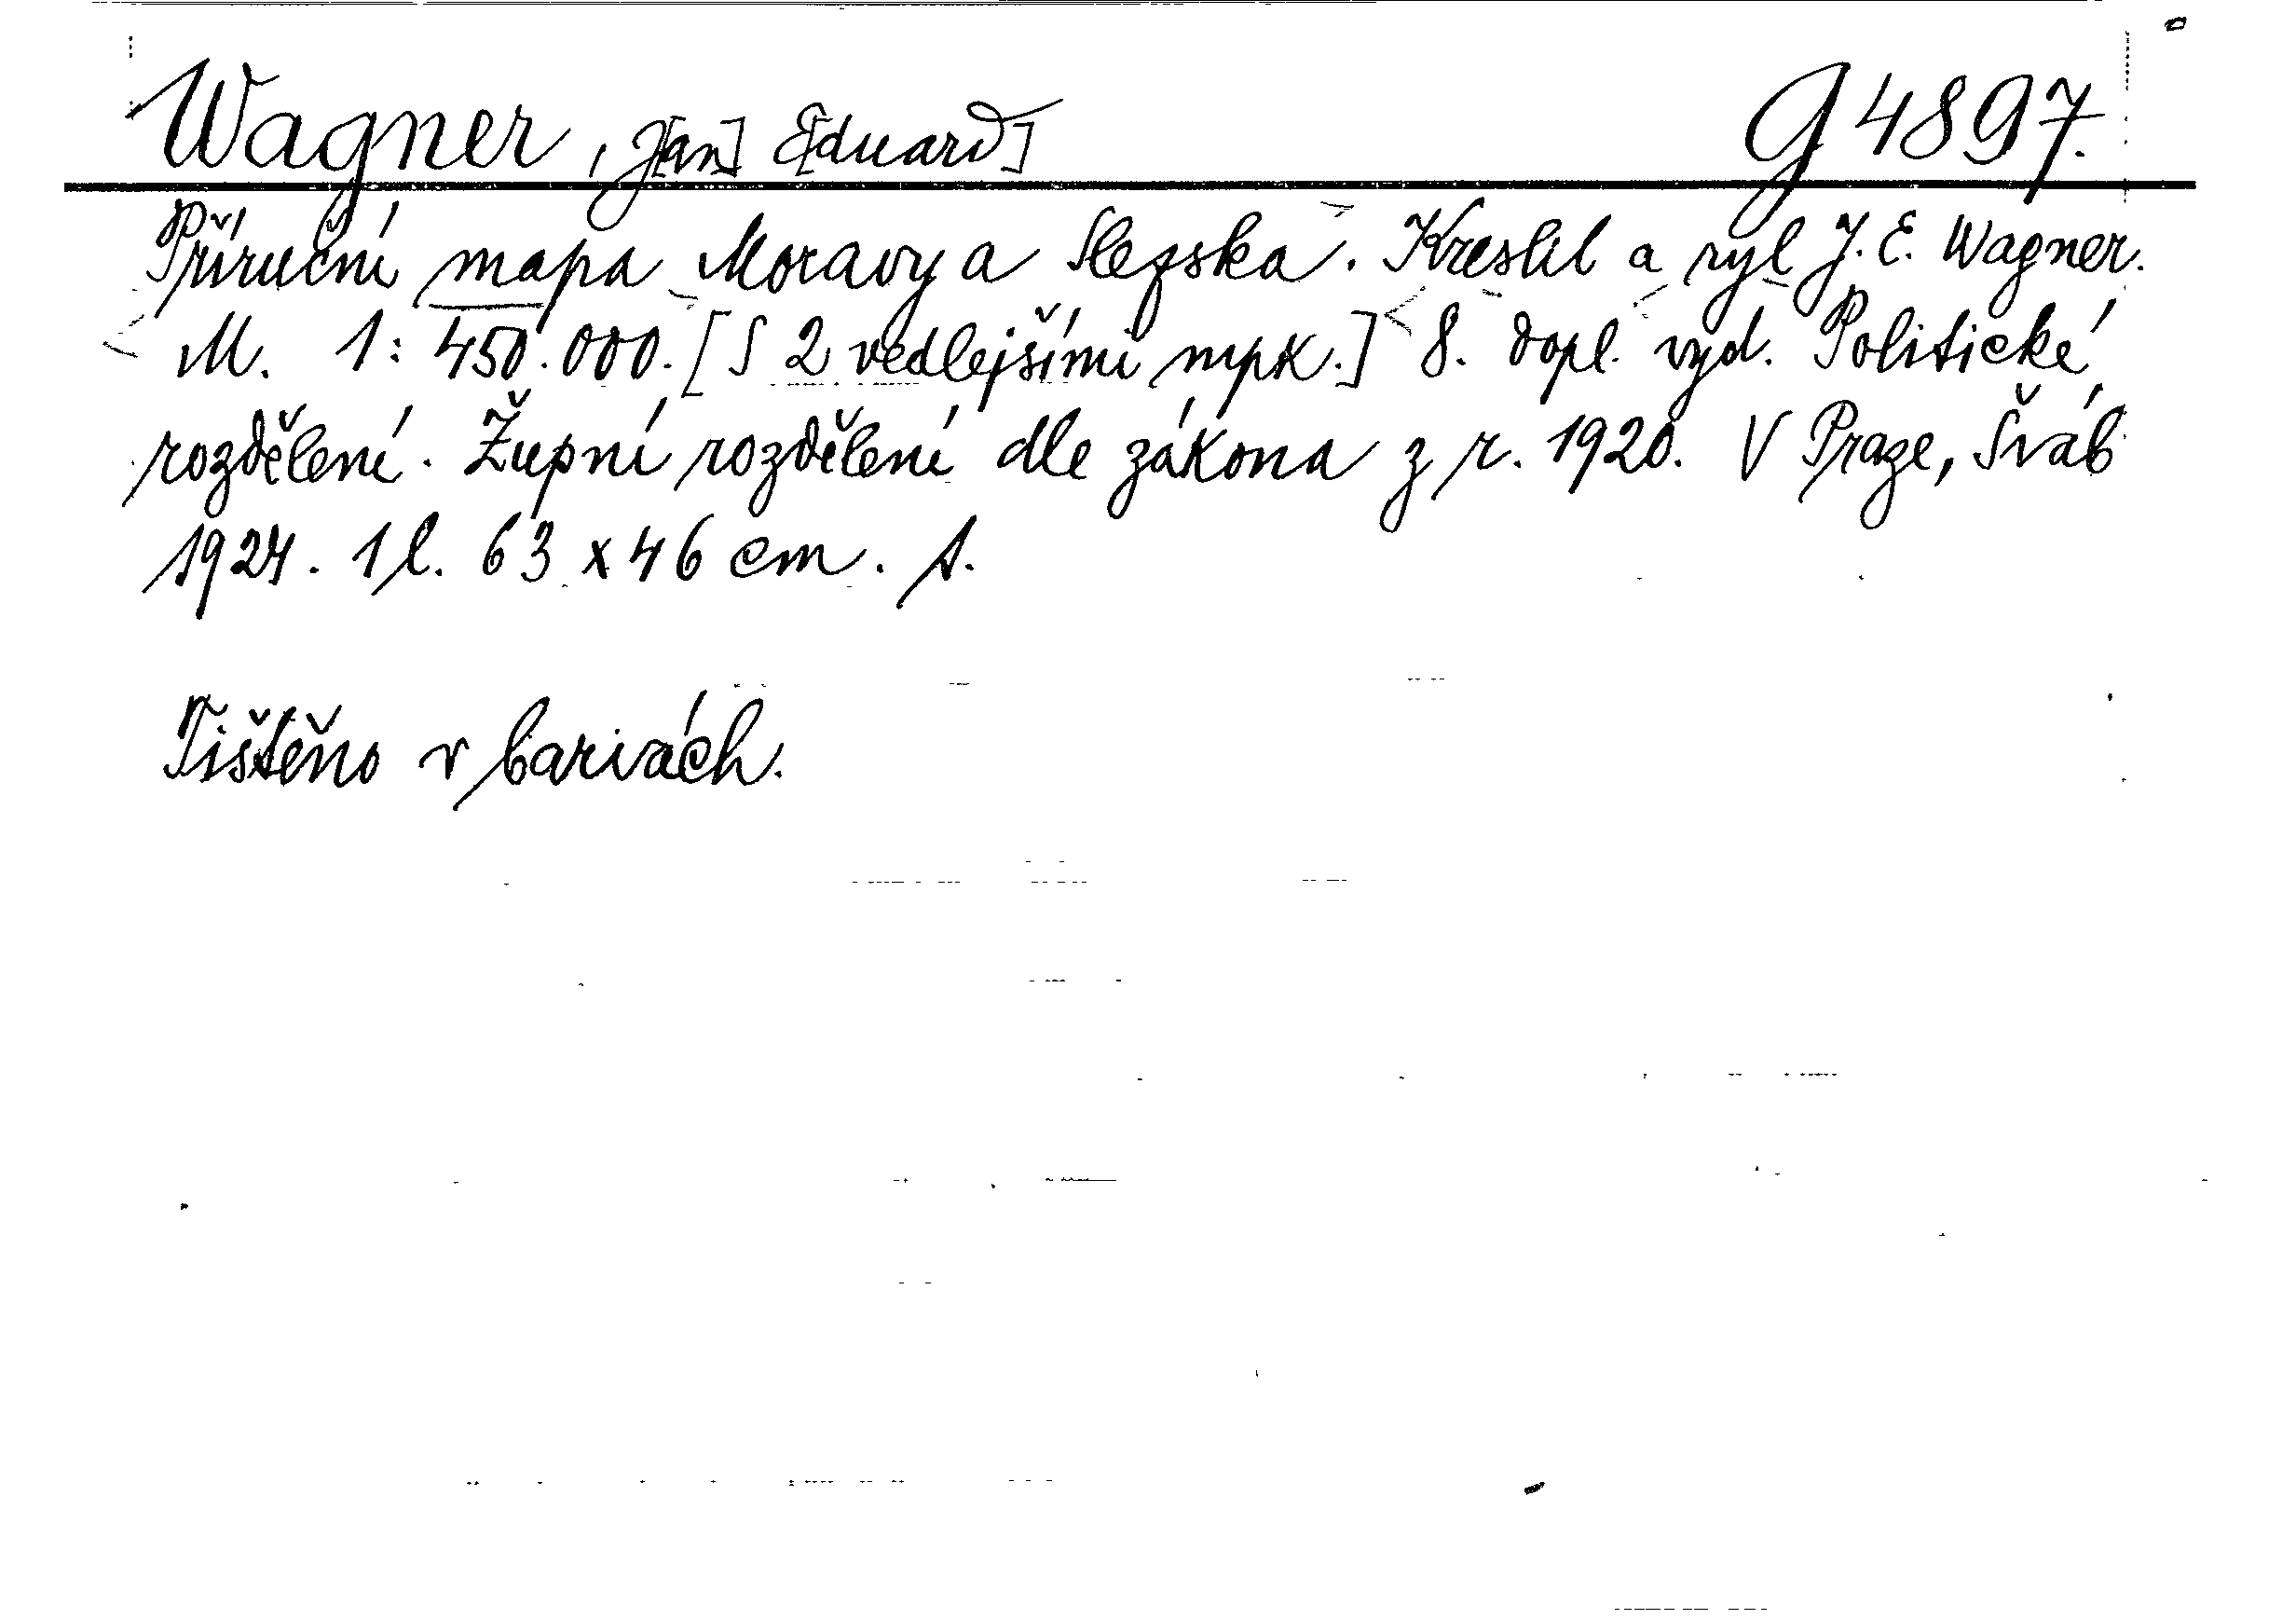 Wagner, J[an] E[duard] G 4897.
Příruční mapa Moravy a Slezska. Kreslil a ryl J. E. Wagner.
M. 1: 450.000. [S 2 vedlejšími mpk.] 8. dopl. vyd. Politické
rozdělení. Župní rozdělení dle zákona z r. 1920. V Praze, Šváb
1924. 1 l. 63 x 46 cm. A.
Tištěno v barvách.